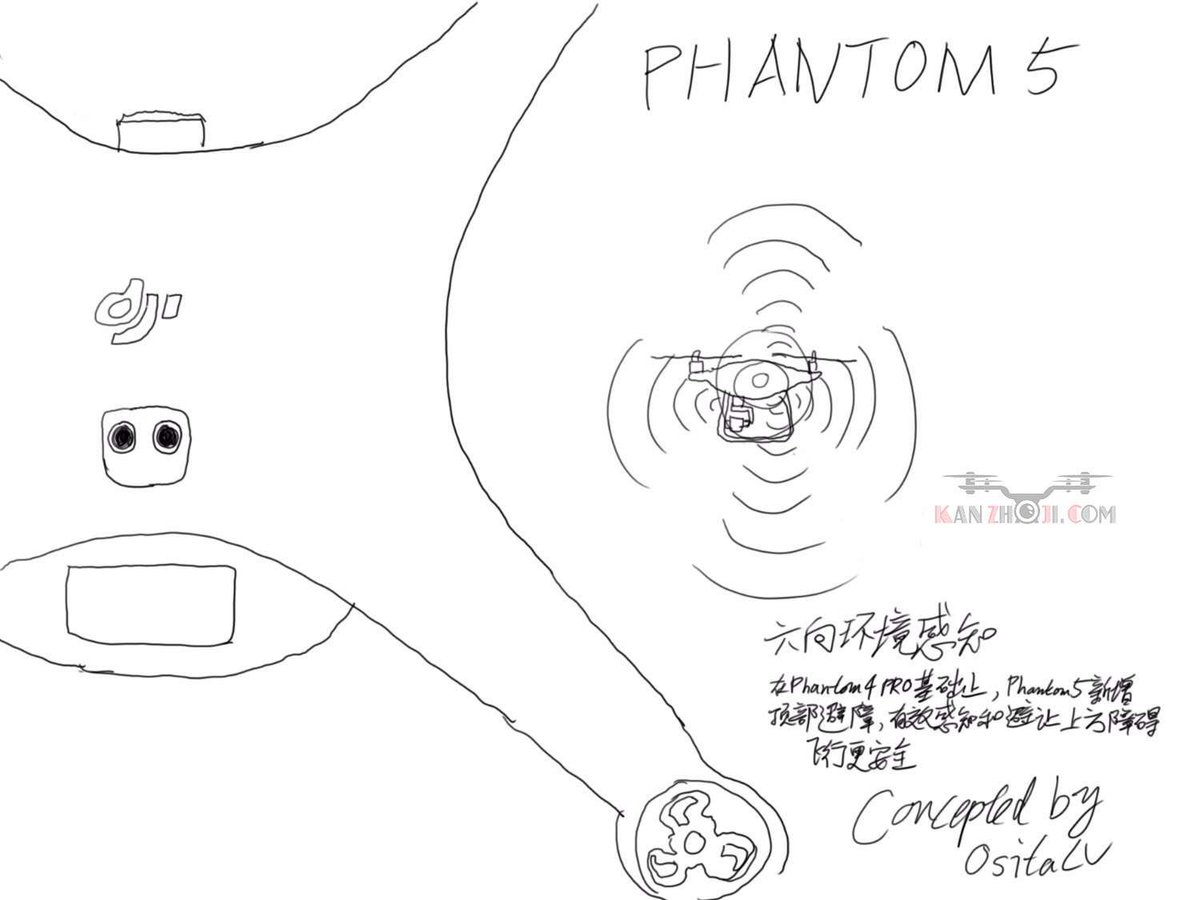 PHANTOM 5
dji
KANZHAJI.COM
六向环境感知
在Phantom4 PRO基础上,Phantom5新增
顶部避障,有效感知和避让上方障碍
飞行更安全
Concepted by
OsitaLV